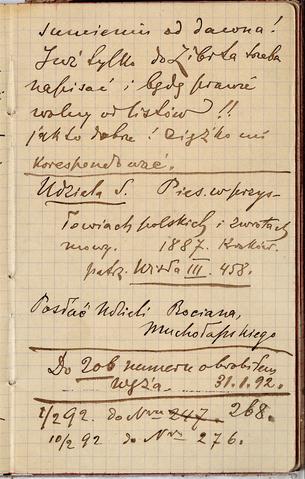 sumieniu od dawna!
Już tylko do Zibrta trzeba
napisać i będę prawie
wolny od listów!!
jak to dobrze! ciężko mi
korespondować.
Udziela S. Pies w przys-
łowiach polskich i zwrotach
mowy. 1887. Kraków.
patrz. Wisła III. 458.
Posłać Udzieli Bociana,
Muchołapskiego
Do 206 numeru obrobiłem
węża. 31.1.92.
1/2 92. do Nru 247. 268.
10/2 92 do Nru 276.